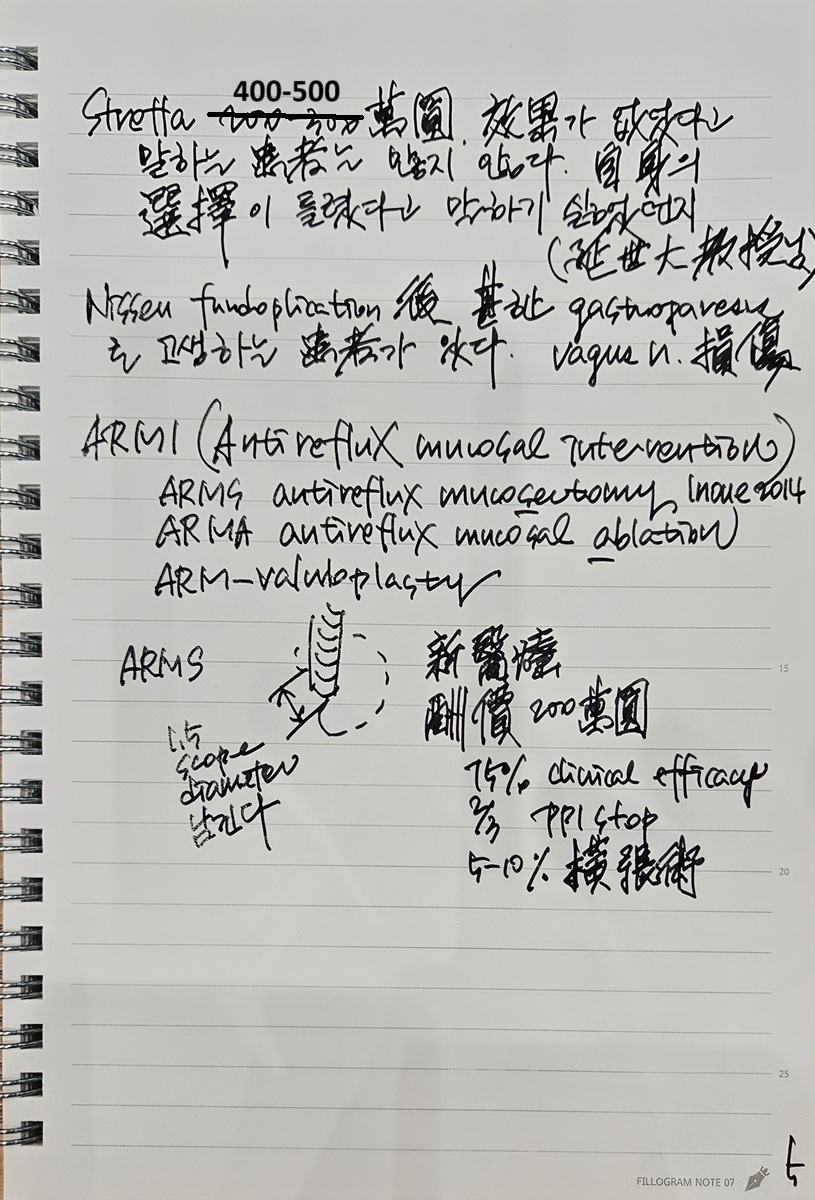 400-500
Stretta 200-300 萬圓. 效果가 없었다고
말하는 患者는 많지 않다. 自身의
選擇이 틀렸다고 말하기 싫었던지
(延世大 敎授님)
Nissen fundoplication 後 甚한 gastroparesis
로 고생하는 患者가 있다. vagus n. 損傷
ARMI (Antireflux mucosal intervention)
ARMS antireflux mucosectomy, Inoue 2014
ARMA antireflux mucosal ablation
ARM-valvuloplasty
ARMS
1.5
scope
diameter
남긴다
新醫療
酬價 200萬圓
75% clinical efficacy
2/3 PPI stop
5-10% 擴張術
15
20
25
FILLOGRAM NOTE 07